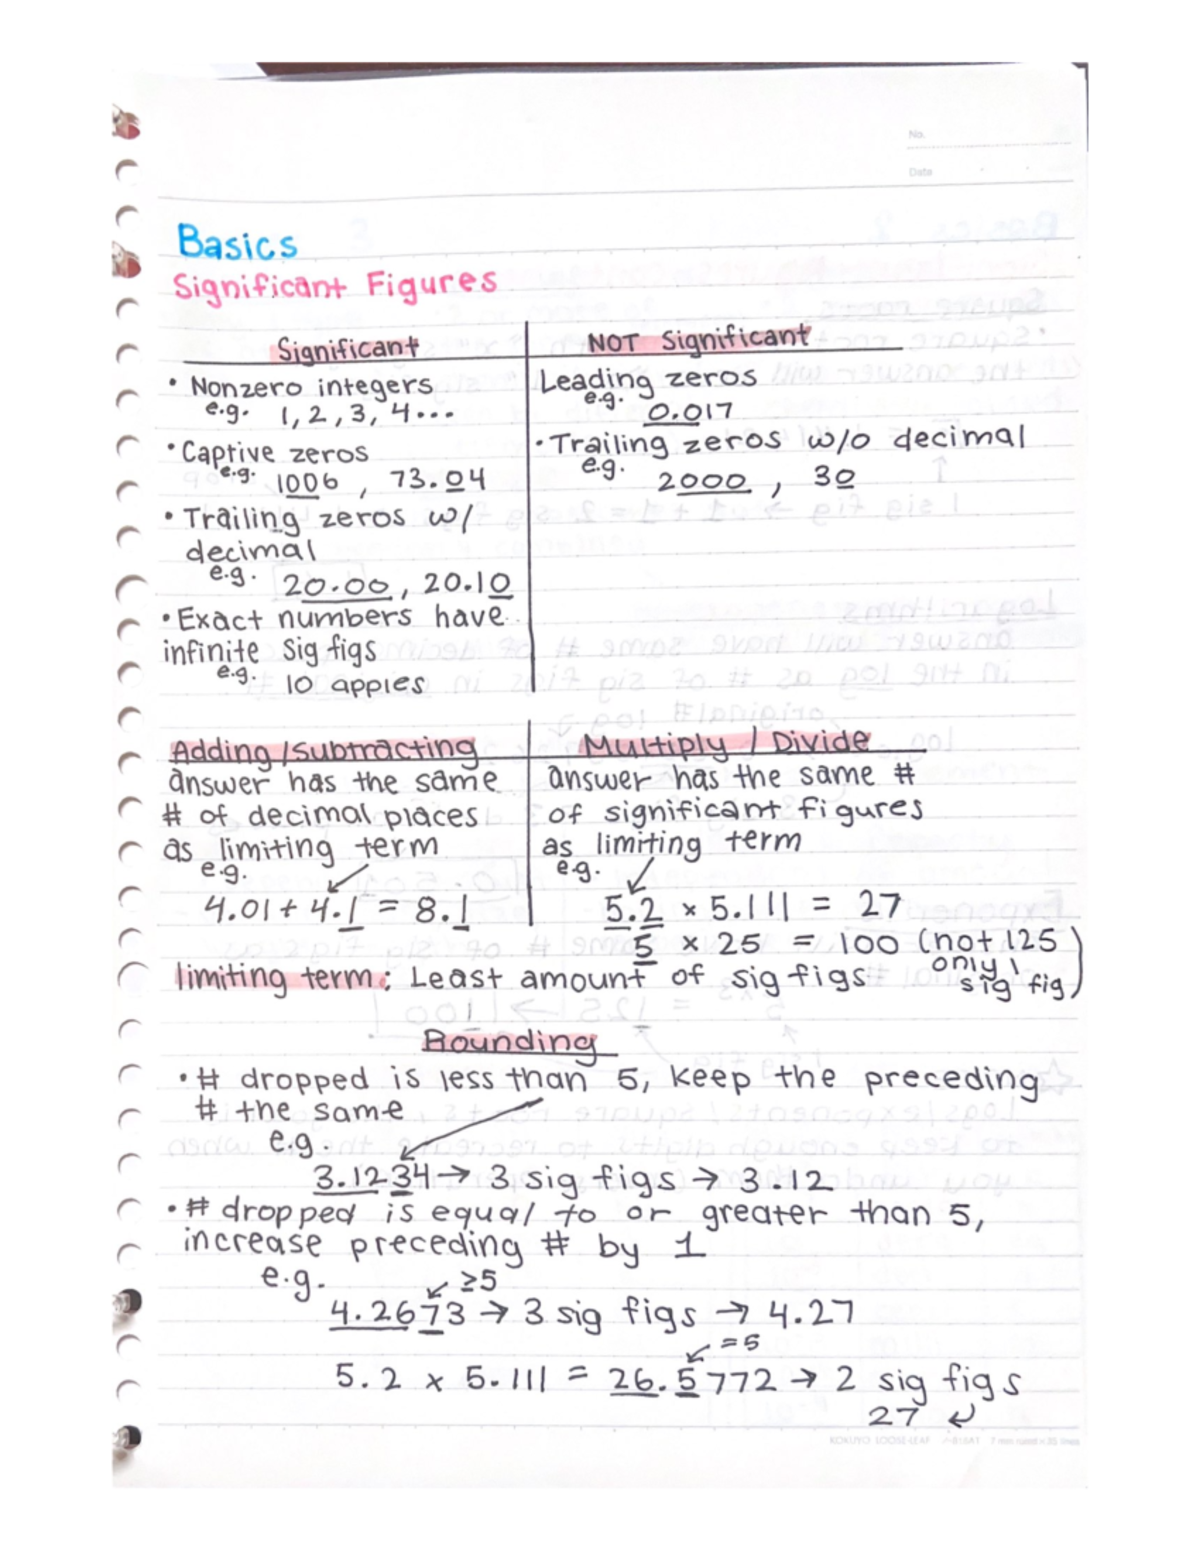 No.
Date
Basics
Significant Figures
Significant
• Nonzero integers
e.g. 1, 2, 3, 4...
• Captive zeros
e.g. 1006 , 73.04
• Trailing zeros w/
decimal
e.g. 20.00, 20.10
• Exact numbers have
infinite Sig figs
e.g. 10 apples
NOT Significant
Leading zeros
e.g. 0.017
• Trailing zeros w/o decimal
e.g. 2000 , 30
Adding/Subtracting
answer has the same
# of decimal places
as limiting term
e.g.
4.01 + 4.1 = 8.1
Multiply / Divide
answer has the same #
of significant figures
as limiting term
e.g.
5.2 × 5.111 = 27
5 × 25 = 100 (not 125
only 1
sig fig)
limiting term: Least amount of sig figs
Rounding
• # dropped is less than 5, keep the preceding
# the same
e.g.
3.1234 → 3 sig figs → 3.12
• # dropped is equal to or greater than 5,
increase preceding # by 1
e.g.
≥5
4.2673 → 3 sig figs → 4.27
=5
5.2 × 5.111 = 26.5772 → 2 sig figs
27
KOKUYO LOOSE-LEAF